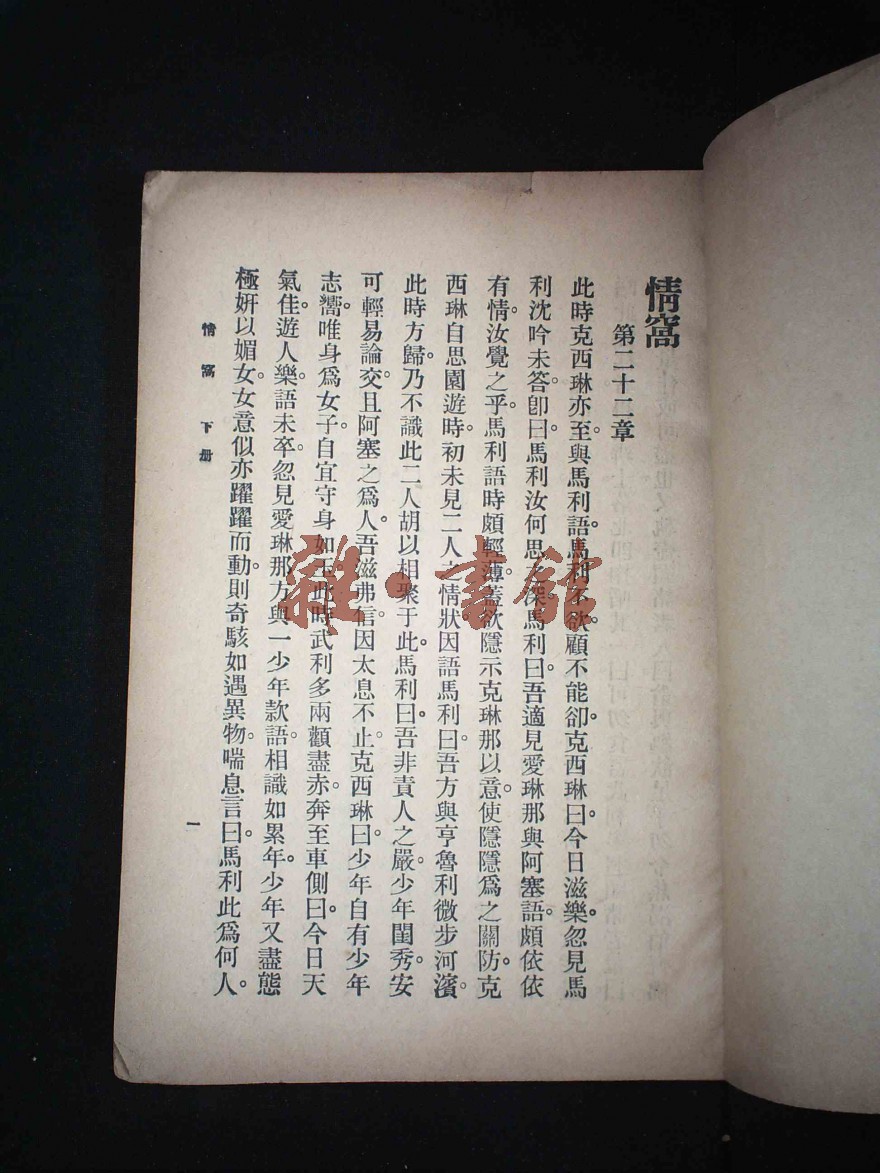 情窩
第二十二章
此時克西琳亦至與馬利語。馬利不欲顧不能卻。克西琳曰今日滋樂。忽見馬
利沈吟未答。卽曰馬利汝何思之深。馬利曰吾適見愛琳那與阿塞語。頗依依
有情。汝覺之乎。馬利語時頗輕薄。蓋欲隱示克琳那以意。使隱隱爲之關防。克
西琳自思園遊時。初未見二人之情狀。因語馬利曰。吾方與亨魯利微步河濱。
此時方歸。乃不識此二人胡以相聚于此。馬利曰。吾非責人之嚴。少年閨秀。安
可輕易論交。且阿塞之爲人。吾滋弗信。因太息不止。克西琳曰。少年自有少年
志嚮。唯身爲女子。自宜守身如玉。此時武利多兩顴盡赤。奔至車側曰。今日天
氣佳。遊人樂。語未卒。忽見愛琳那方與一少年款語。相識如累年。少年又盡態
極姸以媚女。女意似亦躍躍而動。則奇駭如遇異物。喘息言曰。馬利此爲何人。
情窩 下册 一
雜·書館